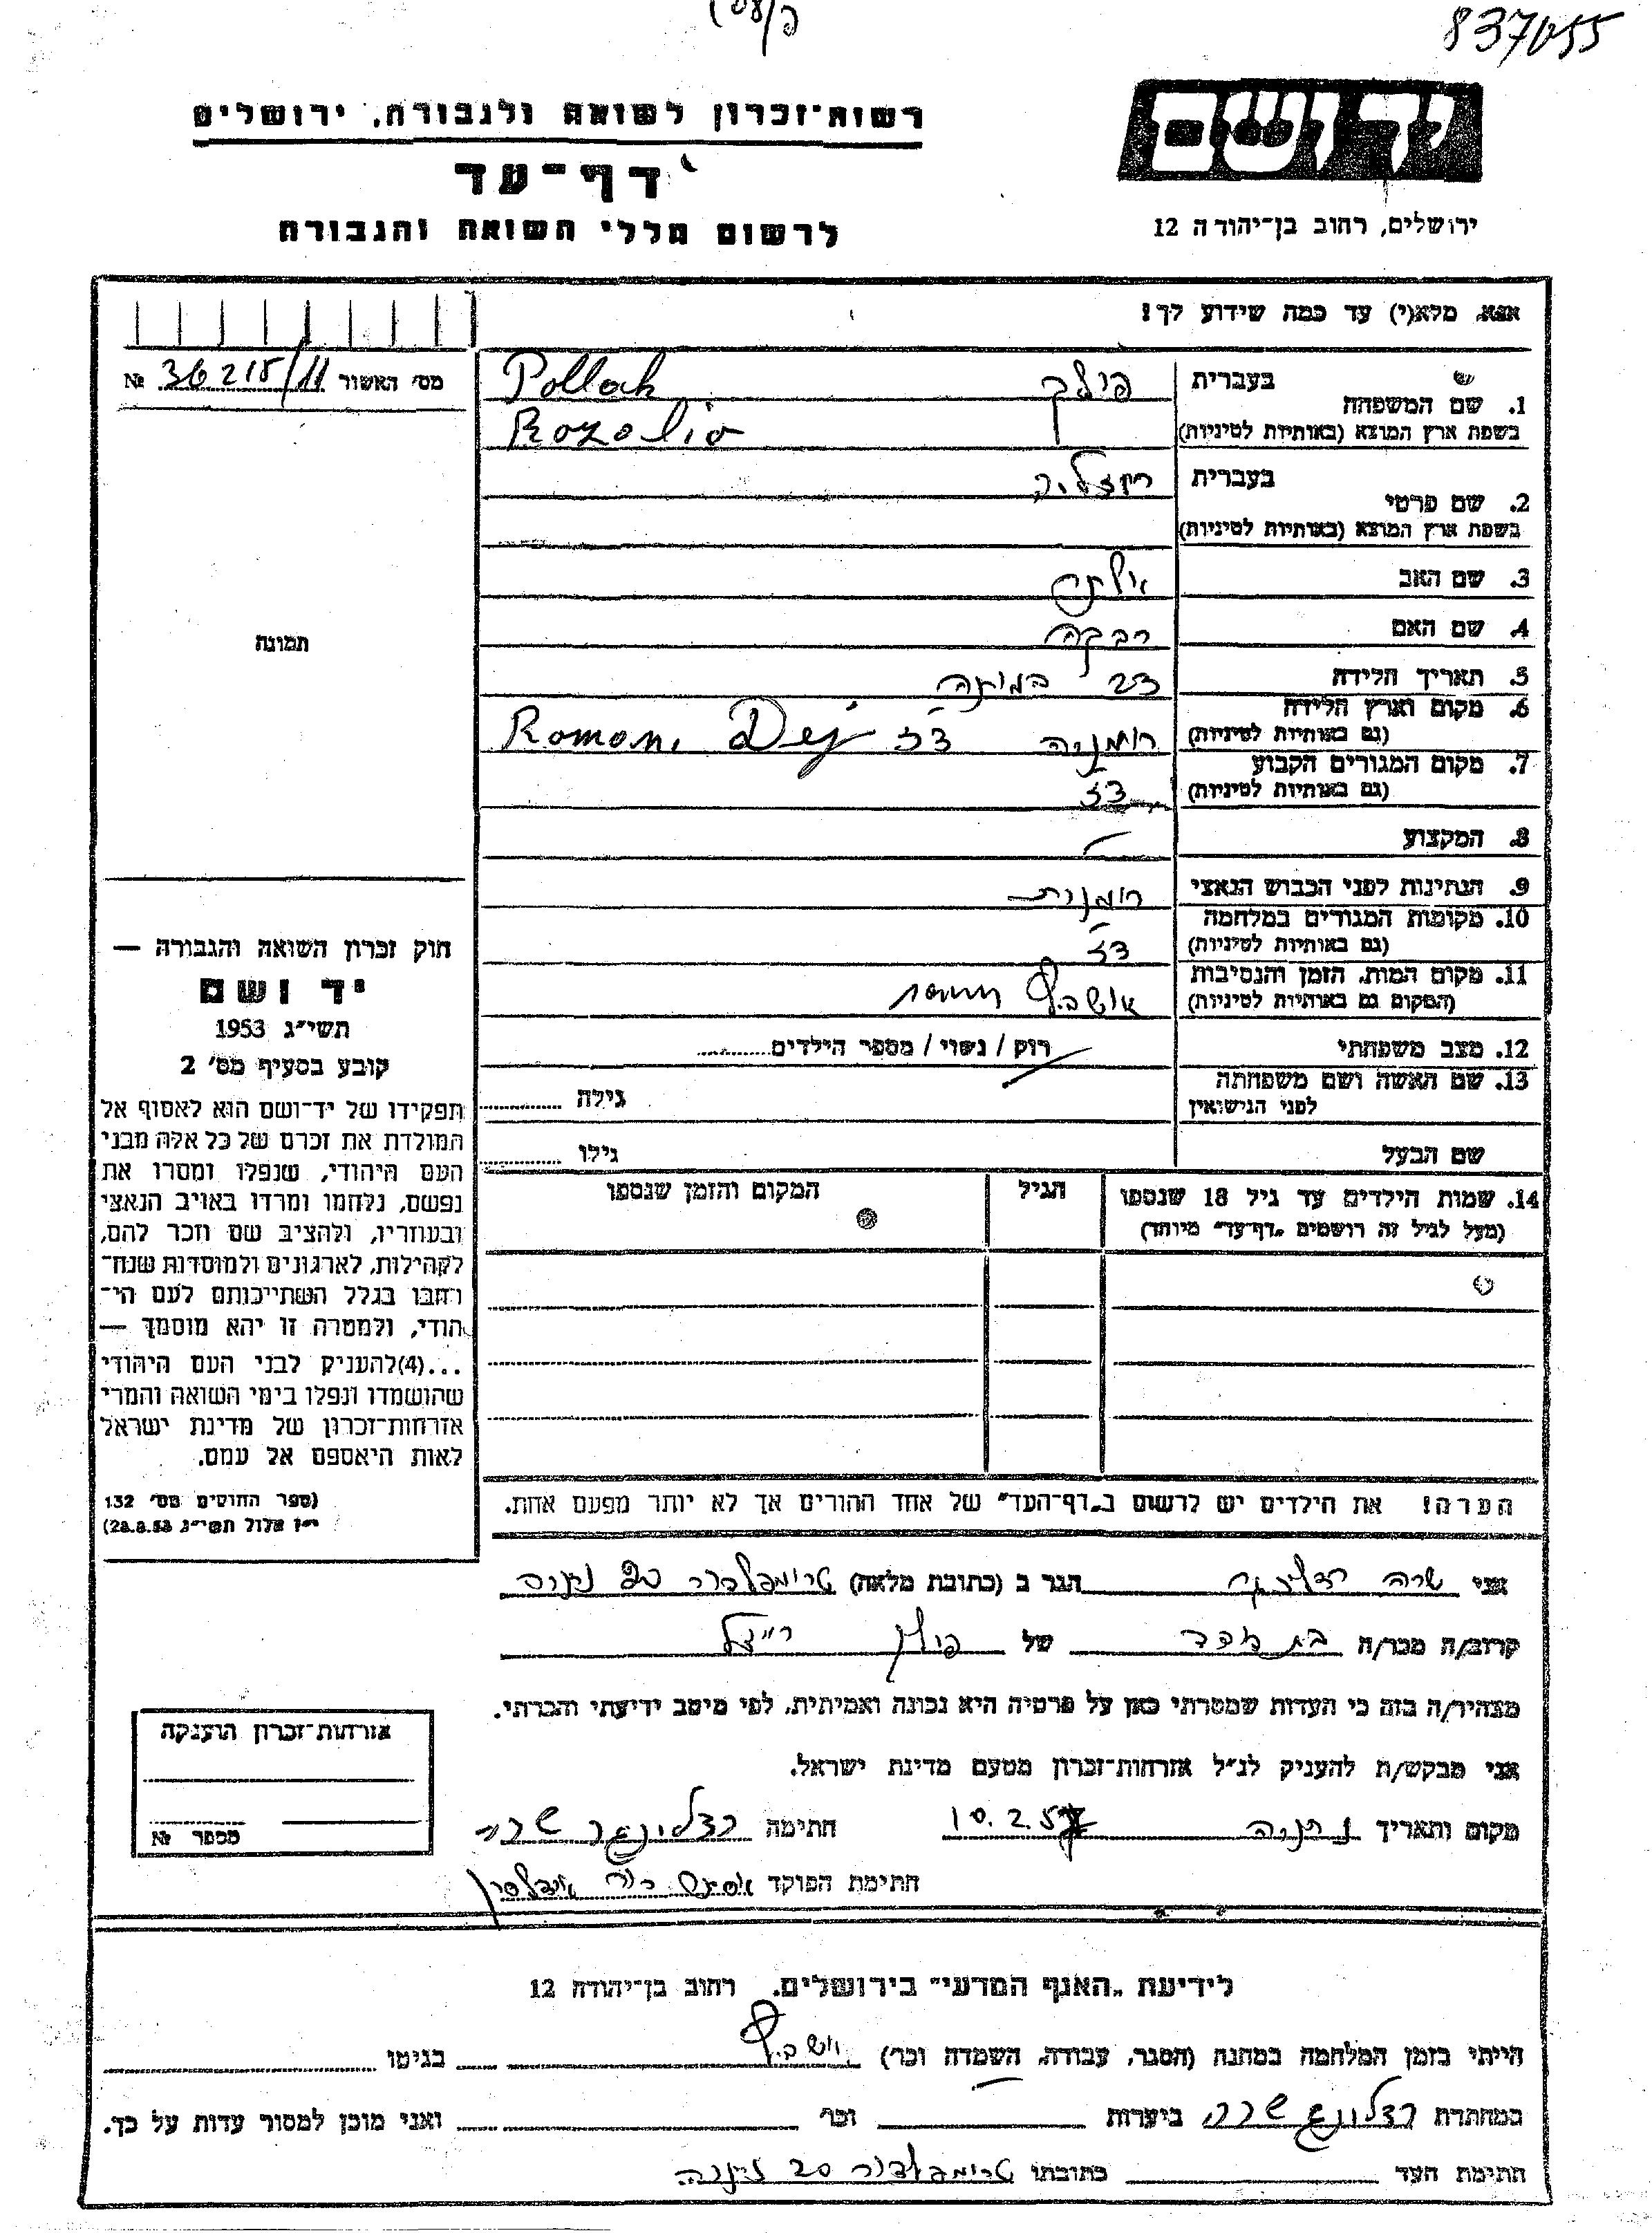 837055
יד ושם
רשות־זכרון לשואה ולגבורה, ירושלים
דף־עד
לרשום חללי השואה והגבורה
ירושלים, רחוב בן־יהודה 12
אנא, מלא(י) עד כמה שידוע לך!
מס׳ האשור № 36215/11
תמונה
1. שם המשפחה
בעברית
פולק
Pollack
בשפת ארץ המוצא (באותיות לטיניות)
Rozalia
2. שם פרטי
בעברית
רוזליה
בשפת ארץ המוצא (באותיות לטיניות)
3. שם האב
4. שם האם
רבקה
5. תאריך הלידה
6. מקום וארץ הלידה
(גם באותיות לטיניות)
רומניה דז Dej
7. מקום המגורים הקבוע
(גם באותיות לטיניות)
דז
8. המקצוע
9. הנתינות לפני הכבוש הנאצי
רומנית
10. מקומות המגורים במלחמה
(גם באותיות לטיניות)
דז
11. מקום המות, הזמן והנסיבות
(המקום גם באותיות לטיניות)
אושביץ
12. מצב משפחתי
רוק / נשוי / מספר הילדים
13. שם האשה ושם משפחתה
לפני הנישואין
גילה
שם הבעל
גילו
14. שמות הילדים עד גיל 18 שנספו
(מעל לגיל זה רושמים „דף־עד״ מיוחד)
הגיל
המקום והזמן שנספו
הערה! את הילדים יש לרשום ב„דף־העד״ של אחד ההורים אך לא יותר מפעם אחת.
חוק זכרון השואה והגבורה —
יד ושם
תשי״ג 1953
קובע בסעיף מס׳ 2
תפקידו של יד־ושם הוא לאסוף אל
המולדת את זכרם של כל אלה מבני
העם היהודי, שנפלו ומסרו את
נפשם, נלחמו ומרדו באויב הנאצי
ובעוזריו, ולהציב שם וזכר להם,
לקהילות, לארגונים ולמוסדות שנח־
רבו בגלל השתייכותם לעם הי־
הודי, ולמטרה זו יהא מוסמך —
...(4)להעניק לבני העם היהודי
שהושמדו ונפלו בימי השואה והמרי
אזרחות־זכרון של מדינת ישראל
לאות היאספם אל עמם.
(ספר החוקים מס׳ 132
י״ז אלול תשי״ג 28.8.53)
אני שרה הגר ב (כתובת מלאה) טרומפלדור 20 נתניה
קרוב/ה מכר/ה של פולק
מצהיר/ה בזה כי העדות שמסרתי כאן על פרטיה היא נכונה ואמיתית, לפי מיטב ידיעתי והכרתי.
אני מבקש/ת להעניק לנ״ל אזרחות־זכרון מטעם מדינת ישראל.
מקום ותאריך נתניה 10.2.57 חתימה שרה
חתימת הפוקד
אזרחות־זכרון הוענקה
מספר №
לידיעת „האגף המדעי״ בירושלים, רחוב בן־יהודה 12
הייתי בזמן המלחמה במחנה (הסגר, עבודה, השמדה וכו׳) אושביץ בגיטו
במחתרת שרה ביערות וכו׳ ואני מוכן למסור עדות על כך.
חתימת העד כתובתו טרומפלדור 20 נתניה